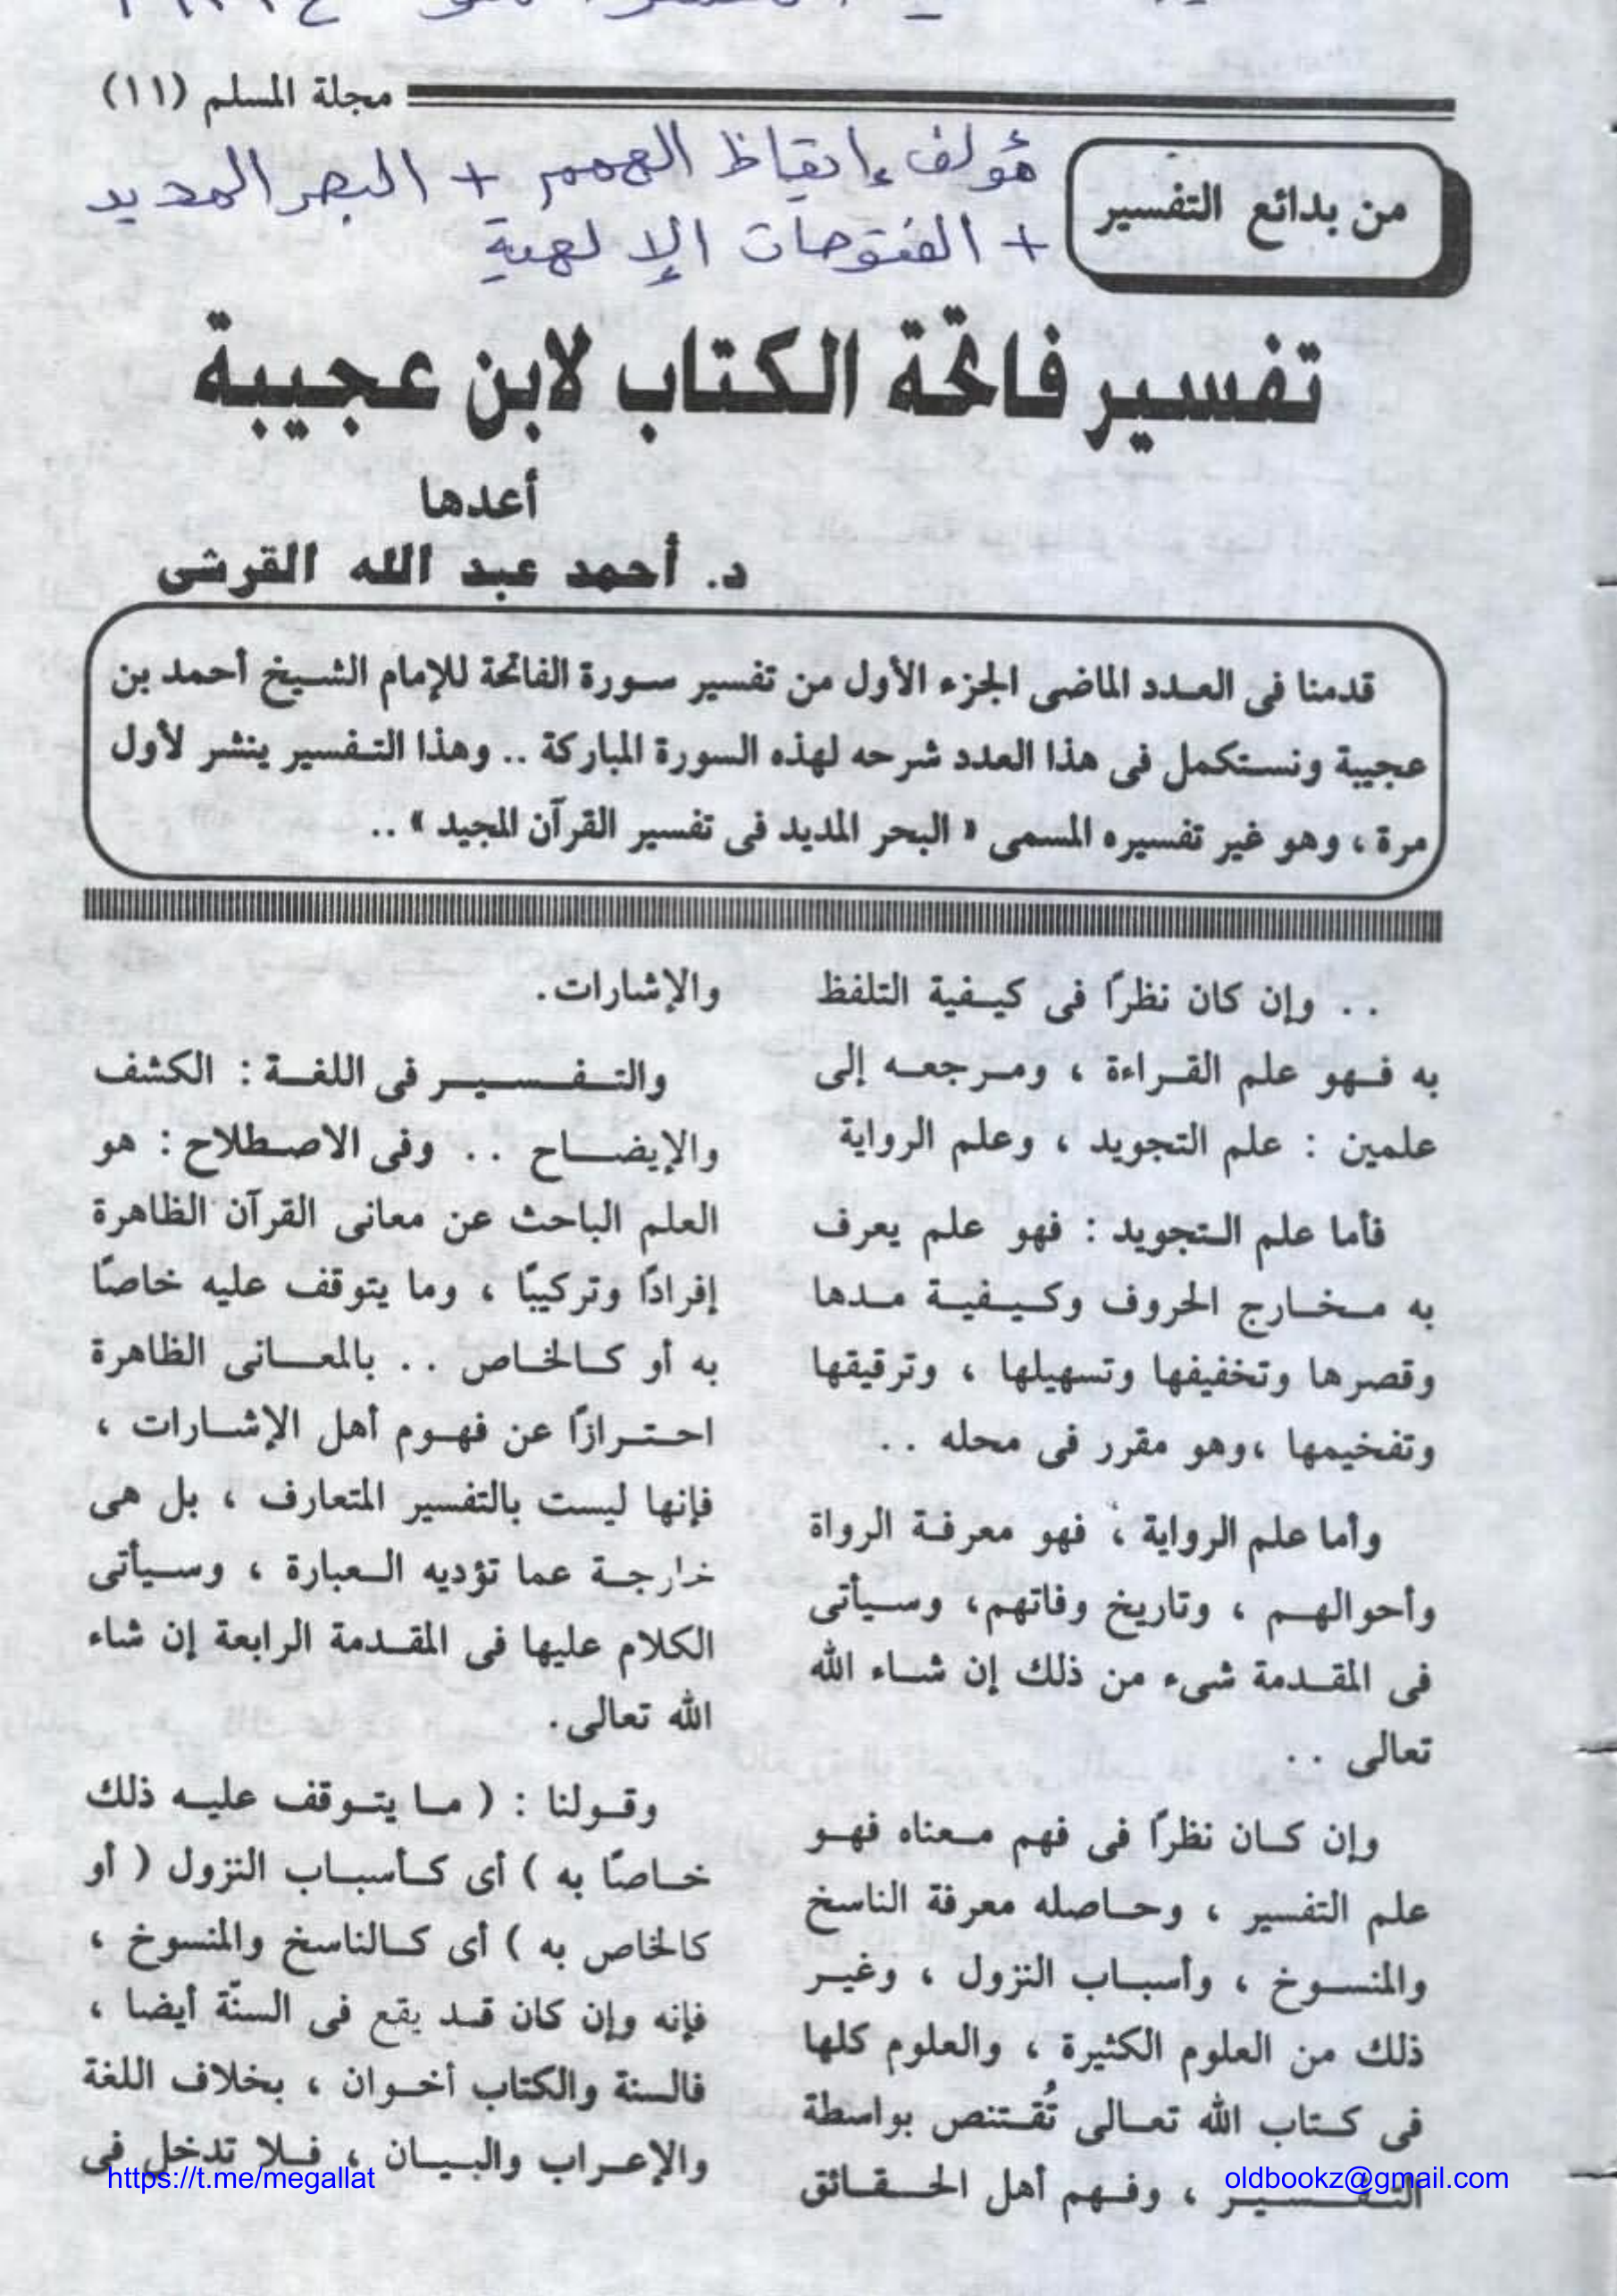 مجلة المسلم (١١)
من بدائع التفسير
مؤلف إيقاظ الهمم + البحر المديد
+ الفتوحات الإلهية
تفسير فاتحة الكتاب لابن عجيبة
أعدها
د. أحمد عبد الله القرشى
قدمنا فى العدد الماضى الجزء الأول من تفسير سورة الفاتحة للإمام الشيخ أحمد بن
عجيبة ونستكمل فى هذا العدد شرحه لهذه السورة المباركة .. وهذا التفسير ينشر لأول
مرة ، وهو غير تفسيره المسمى « البحر المديد فى تفسير القرآن المجيد » ..
.. وإن كان نظرًا فى كيفية التلفظ
به فهو علم القراءة ، ومرجعه إلى
علمين : علم التجويد ، وعلم الرواية
فأما علم التجويد : فهو علم يعرف
به مخارج الحروف وكيفية مدها
وقصرها وتخفيفها وتسهيلها ، وترقيقها
وتفخيمها ،وهو مقرر فى محله ..
وأما علم الرواية ، فهو معرفة الرواة
وأحوالهم ، وتاريخ وفاتهم، وسيأتى
فى المقدمة شىء من ذلك إن شاء الله
تعالى ..
وإن كان نظرًا فى فهم معناه فهو
علم التفسير ، وحاصله معرفة الناسخ
والمنسوخ ، وأسباب النزول ، وغير
ذلك من العلوم الكثيرة ، والعلوم كلها
فى كتاب الله تعالى تُقتنص بواسطة
التفسير ، وفهم أهل الحقائق
والإشارات.
والتفسير فى اللغة : الكشف
والإيضاح .. وفى الاصطلاح : هو
العلم الباحث عن معانى القرآن الظاهرة
إفرادًا وتركيبًا ، وما يتوقف عليه خاصًا
به أو كالخاص .. بالمعانى الظاهرة
احترازًا عن فهوم أهل الإشارات ،
فإنها ليست بالتفسير المتعارف ، بل هى
خارجة عما تؤديه العبارة ، وسيأتى
الكلام عليها فى المقدمة الرابعة إن شاء
الله تعالى.
وقولنا : ( ما يتوقف عليه ذلك
خاصًا به ) أى كأسباب النزول ( أو
كالخاص به ) أى كالناسخ والمنسوخ ،
فإنه وإن كان قد يقع فى السنّة أيضا ،
فالسنة والكتاب أخوان ، بخلاف اللغة
والإعراب والبيان ، فلا تدخل فى
https://t.me/megallat
oldbookz@gmail.com